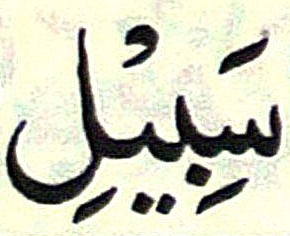 سَبِيْلِ